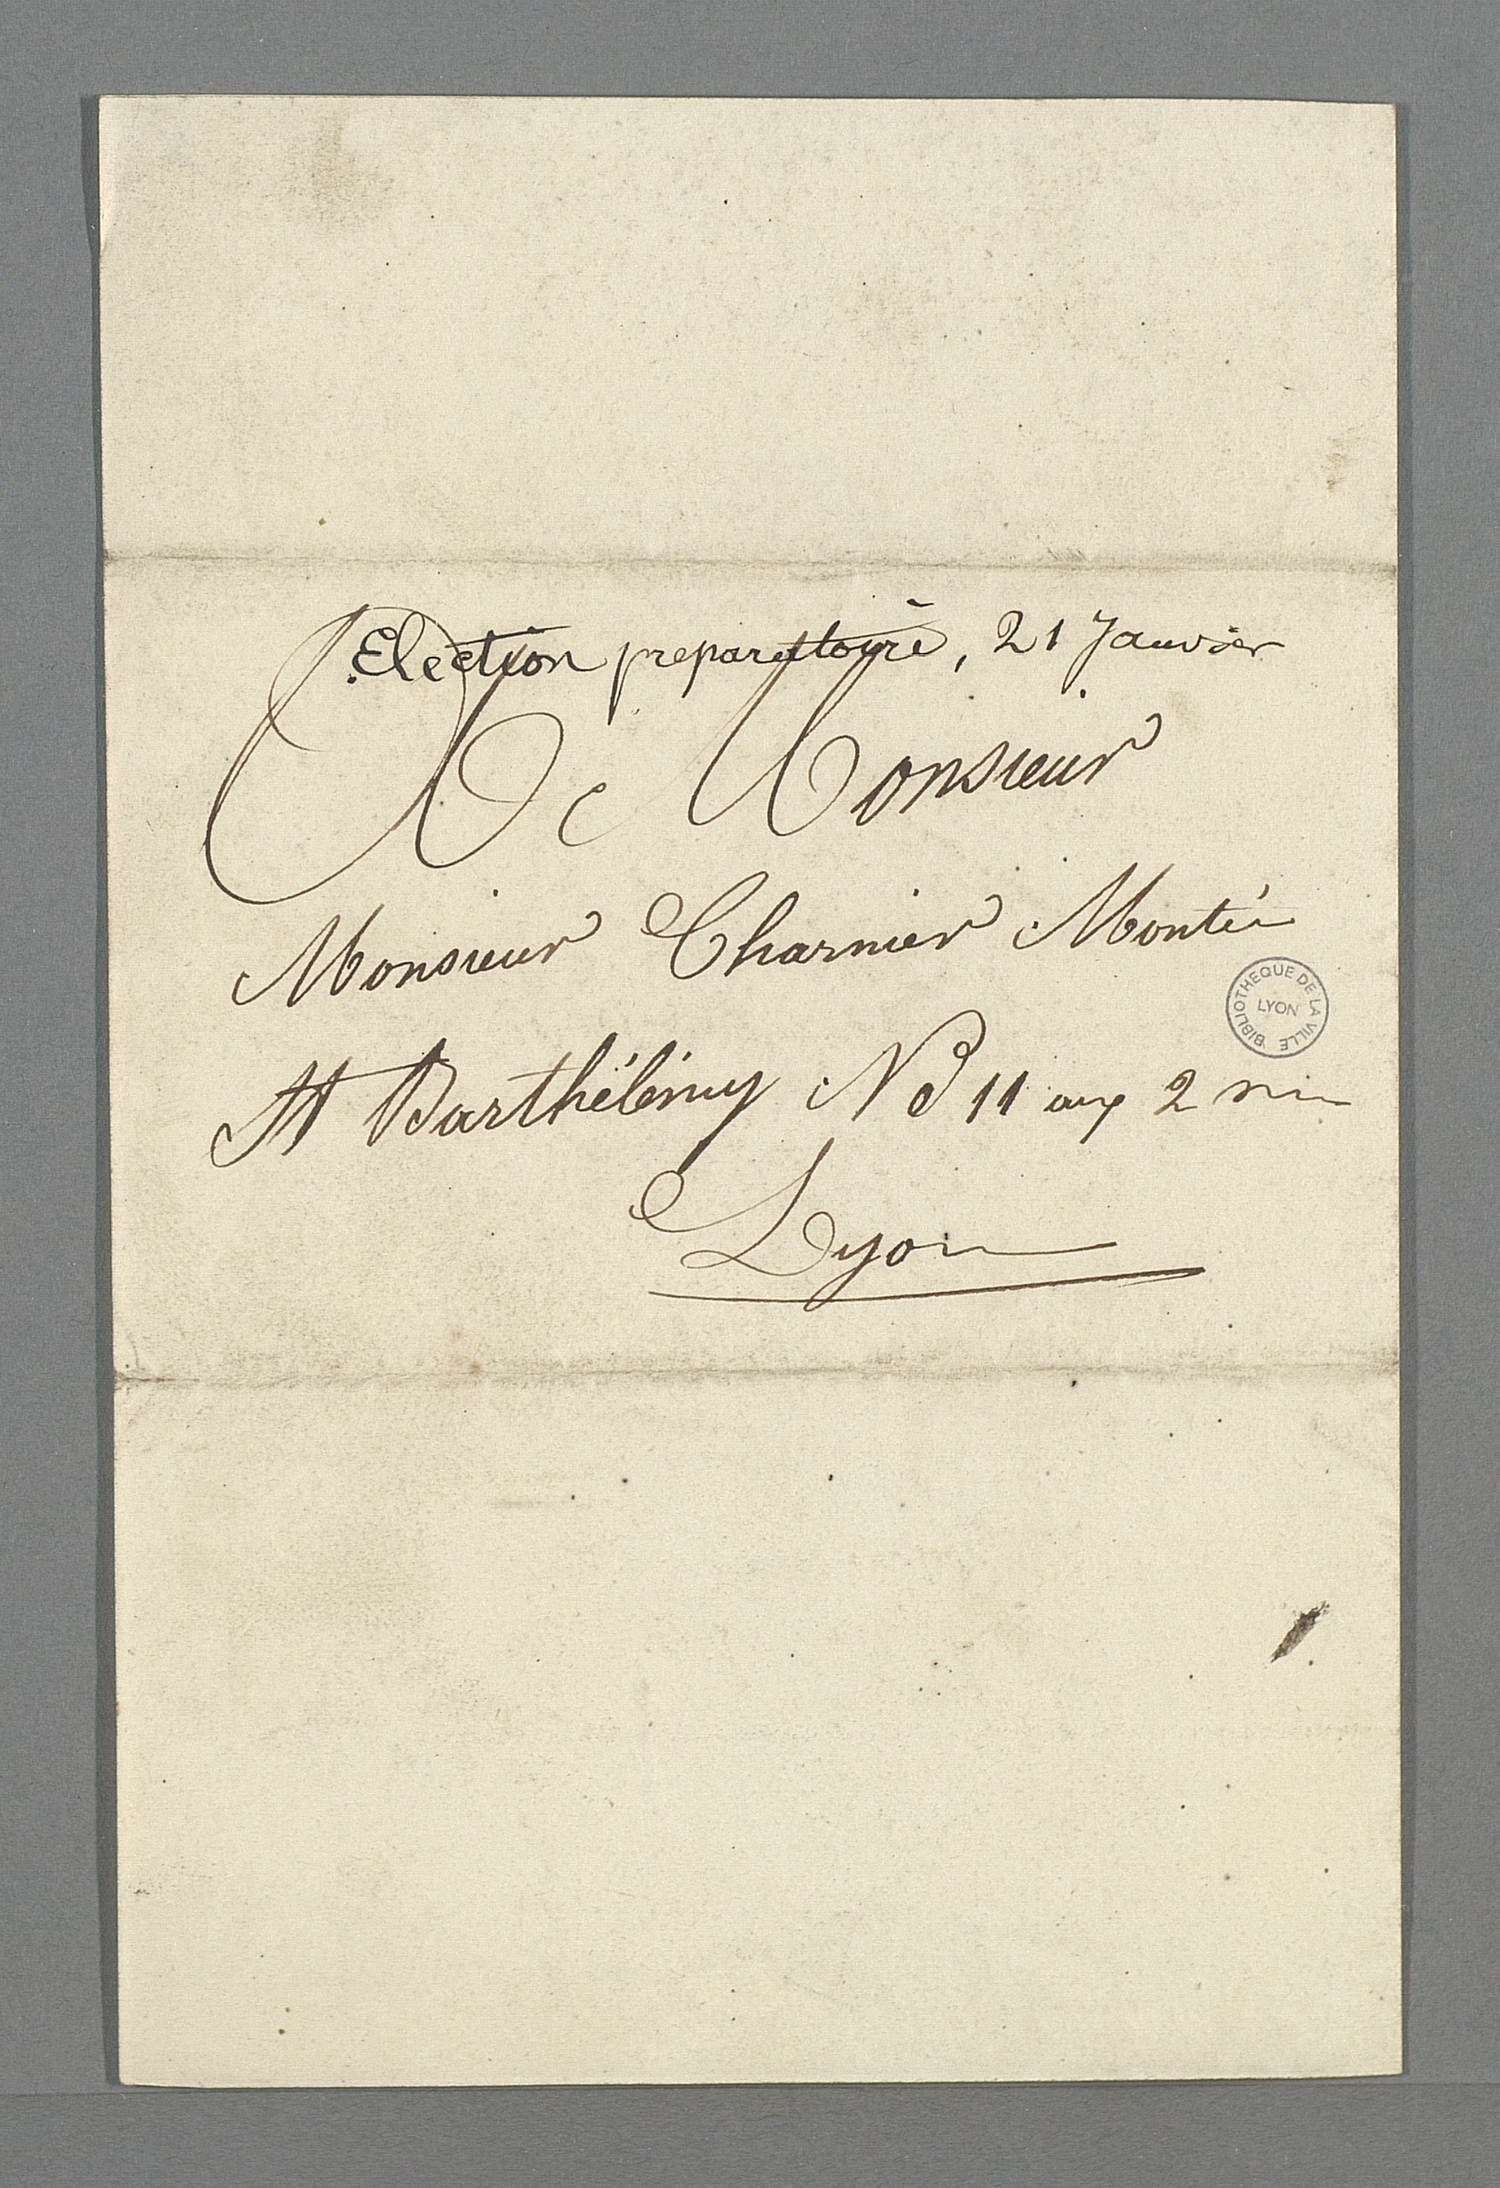 Election preparatoire, 21 Janvier
A Monsieur
Monsieur Charnier Montée
St Barthélémy No 11 aux 2
Lyon
BIBLIOTHEQUE DE LA VILLE
LYON